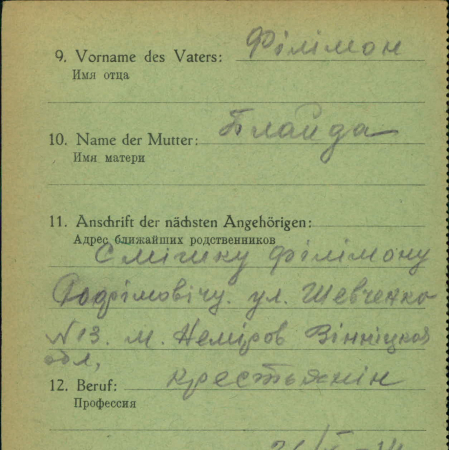 9. Vorname des Vaters: Філімон
Имя отца
10. Name der Mutter:
Имя матери
11. Anschrift der nächsten Angehörigen:
Адрес ближайших родственников
Філімону
ул. Шевченко
N 13. м. Неміров Вінніцкой
обл,
12. Beruf: крестьянін
Профессия